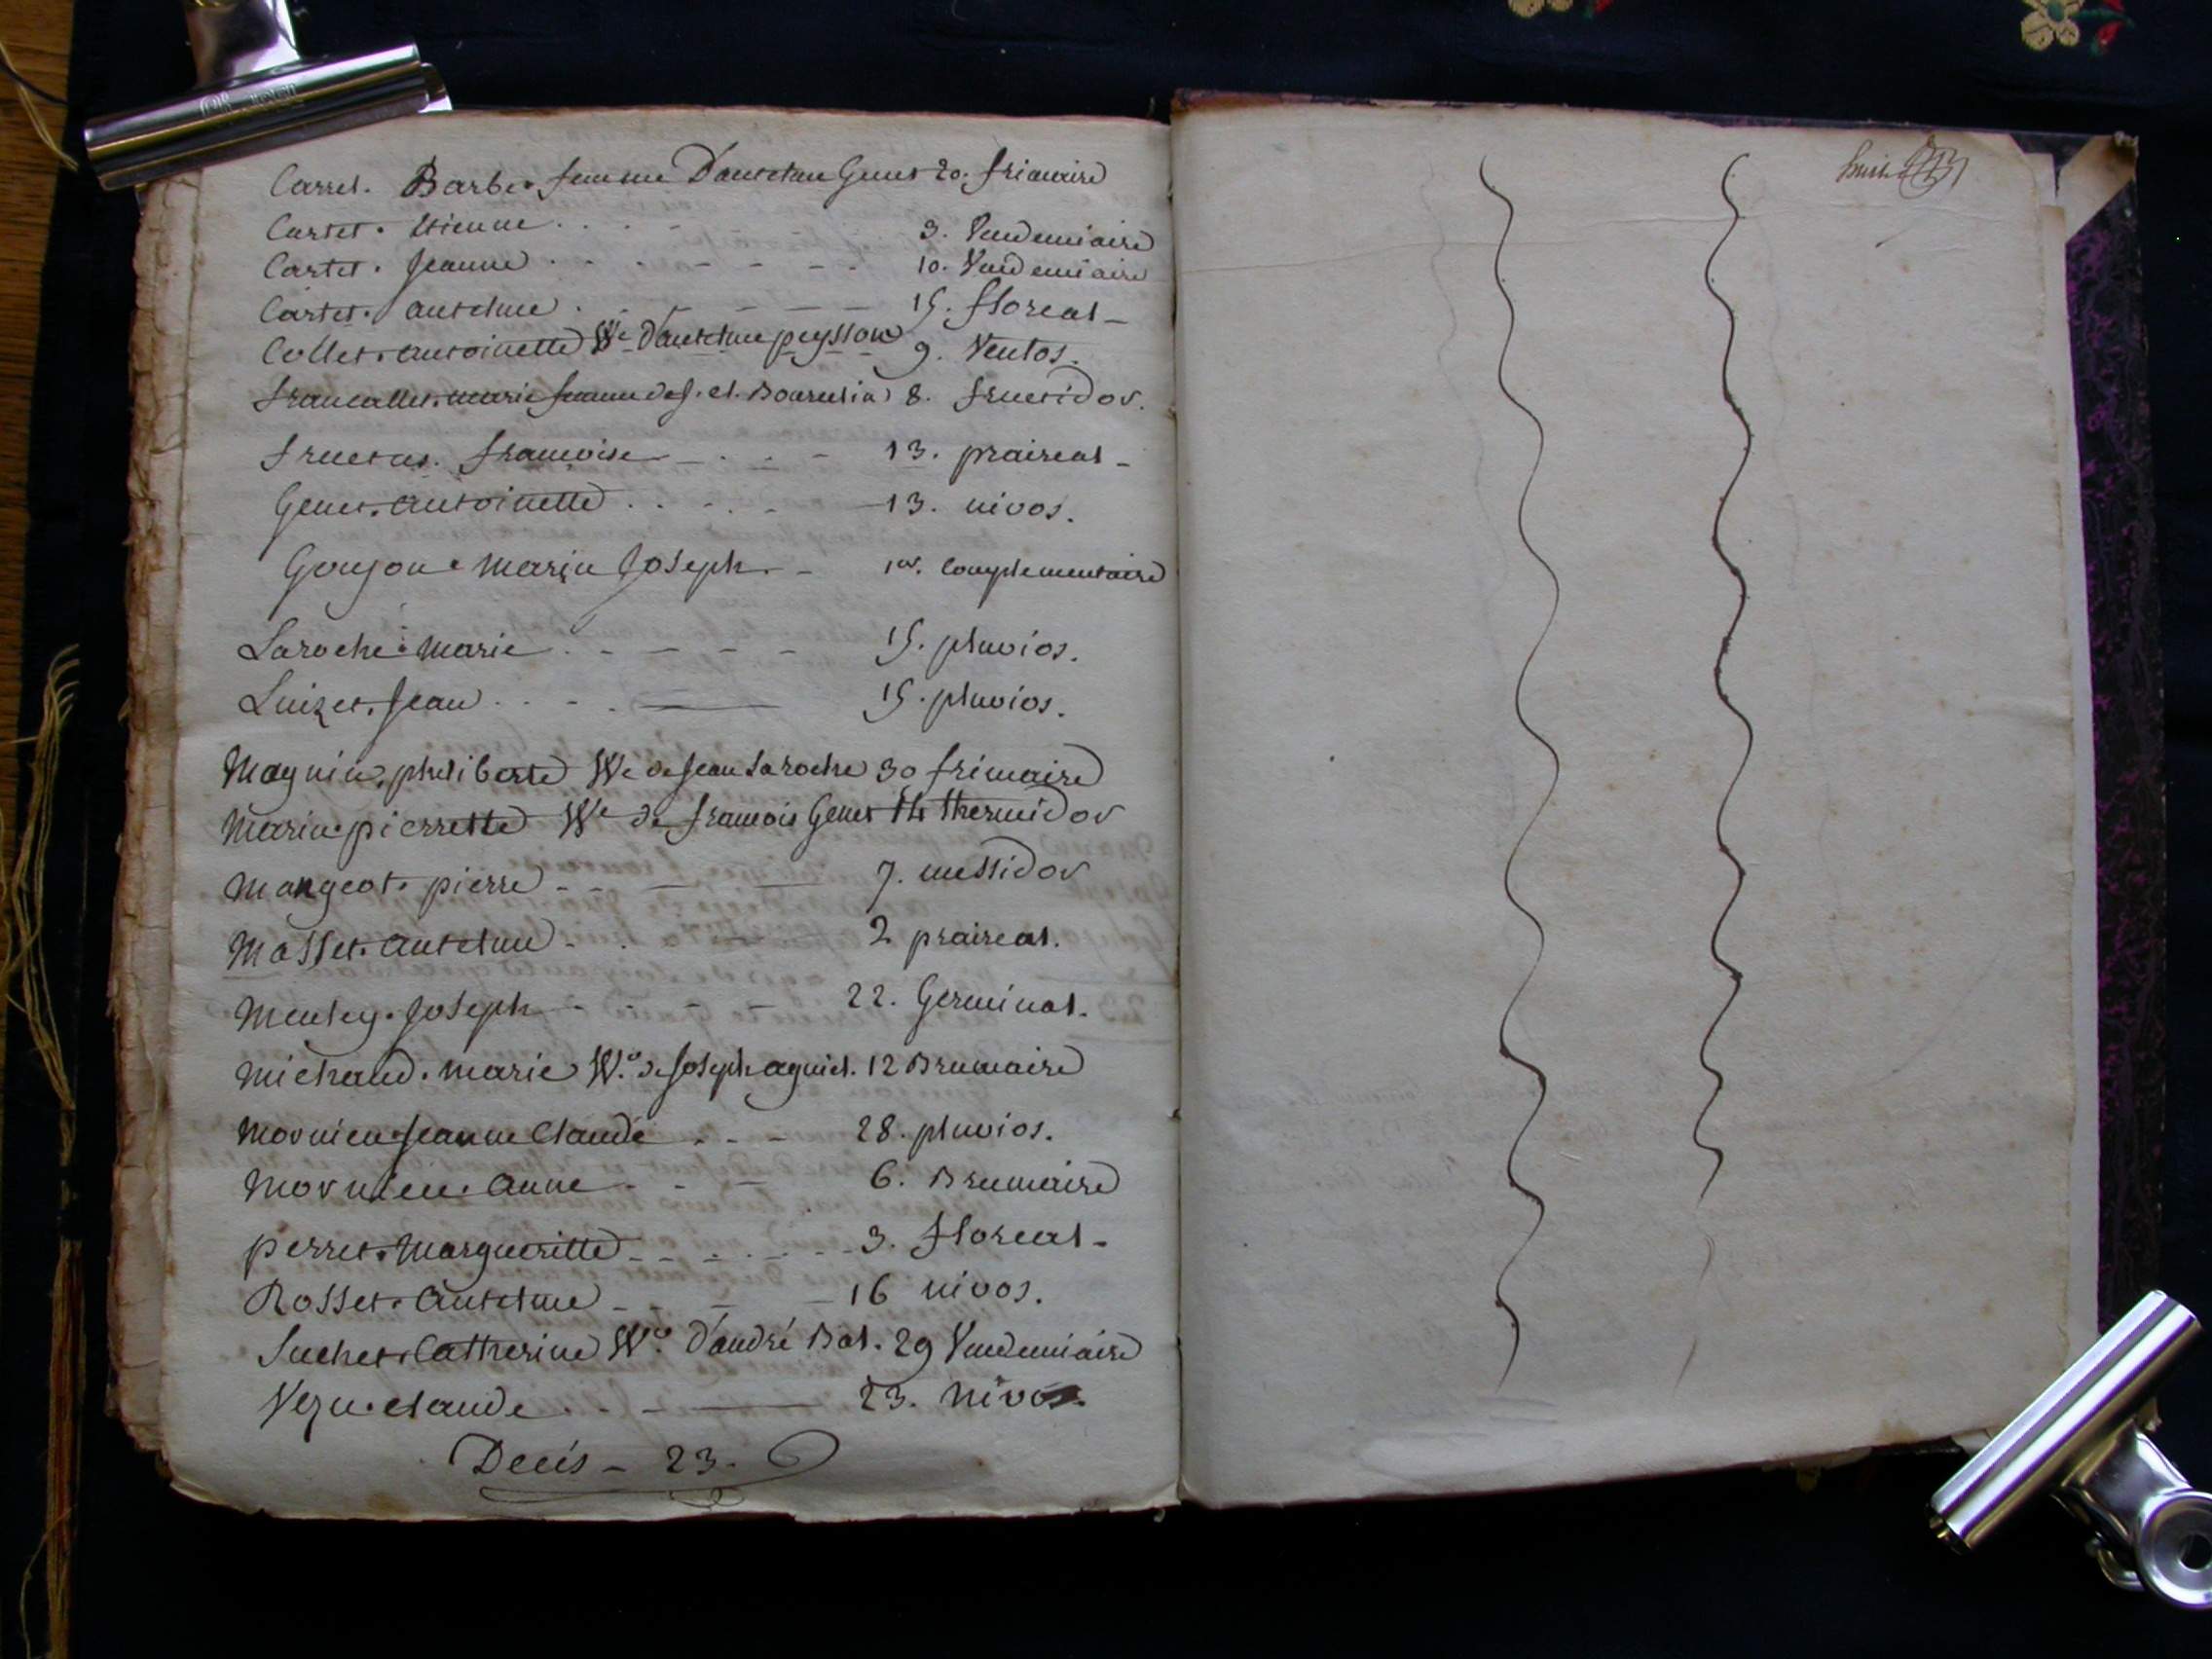 Carret. Barbe femme D'antelme Genet 20. frimaire
Cartet. Etienne 3. Vendemiaire
Cartet. Jeanne 10. Vendemiaire
Cartet. antelme 15. floreal
Collet. antoinette Ve D'antelme peysson 9. Ventos.
francallet. marie femme de j. cl. Bourdin 8. fructidor.
fructus. francoise 13. praireal
Genet. antoinette 13. nivos.
Goujon. marin Joseph 1er. Complementaire
Laroche. marie 15. pluvios.
Luizet. jean 15. pluvios.
Magnin. philiberte Ve de jean Laroche 30 frimaire
Marin. pierrette Ve de francois Genet 14 thermidor
Mangeot. pierre 7. messidor
Masset. antelme 2 praireal.
Joseph 22. Germinal.
Michaud. marie Ve. de Joseph 12 Brumaire
Mornieu jeanne Claude 28. pluvios.
Mornieu. anne 6. Brumaire
perret. Margueritte 3. floreal
Rosset. antelme 16 nivos.
Suchet. Catherine Ve. D'andré Bal. 29 Vendemiaire
Claude 23. Nivos.
Decés - 23.